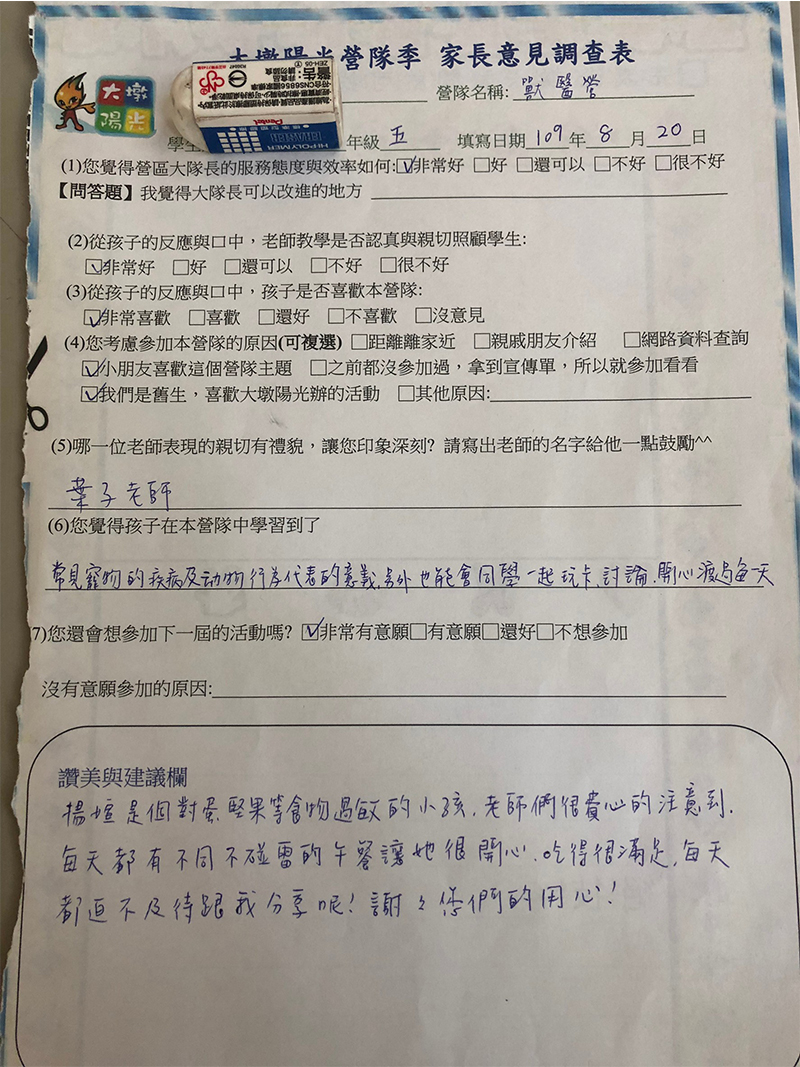 大墩陽光營隊季 家長意見調查表
大墩
陽光
營隊名稱: 獸醫營
年級 五 填寫日期 109 年 8 月 20 日
警告:
非食品
請勿吞食
ZEH-05
Pentel
HI-POLYMER
(1)您覺得營區大隊長的服務態度與效率如何:☑非常好 □好 □還可以 □不好 □很不好
【問答題】我覺得大隊長可以改進的地方
(2)從孩子的反應與口中，老師教學是否認真與親切照顧學生:
☑非常好 □好 □還可以 □不好 □很不好
(3)從孩子的反應與口中，孩子是否喜歡本營隊:
☑非常喜歡 □喜歡 □還好 □不喜歡 □沒意見
(4)您考慮參加本營隊的原因(可複選) □距離離家近 □親戚朋友介紹 □網路資料查詢
☑小朋友喜歡這個營隊主題 □之前都沒參加過，拿到宣傳單，所以就參加看看
☑我們是舊生，喜歡大墩陽光辦的活動 □其他原因:
(5)哪一位老師表現的親切有禮貌，讓您印象深刻? 請寫出老師的名字給他一點鼓勵^^
葉子老師
(6)您覺得孩子在本營隊中學習到了
常見寵物的疾病及动物行為代表的意義,另外也能會同學一起玩卡,討論.開心渡過每一天
7)您還會想參加下一屆的活動嗎? ☑非常有意願□有意願□還好□不想參加
沒有意願參加的原因:
讚美與建議欄
揚愃是個對蛋.堅果等食物過敏的小孩.老師們很費心的注意到.
每天都有不同不碰雷的午餐讓她很開心.吃得很滿足,每天
都迫不及待跟我分享呢!謝々您們的用心!